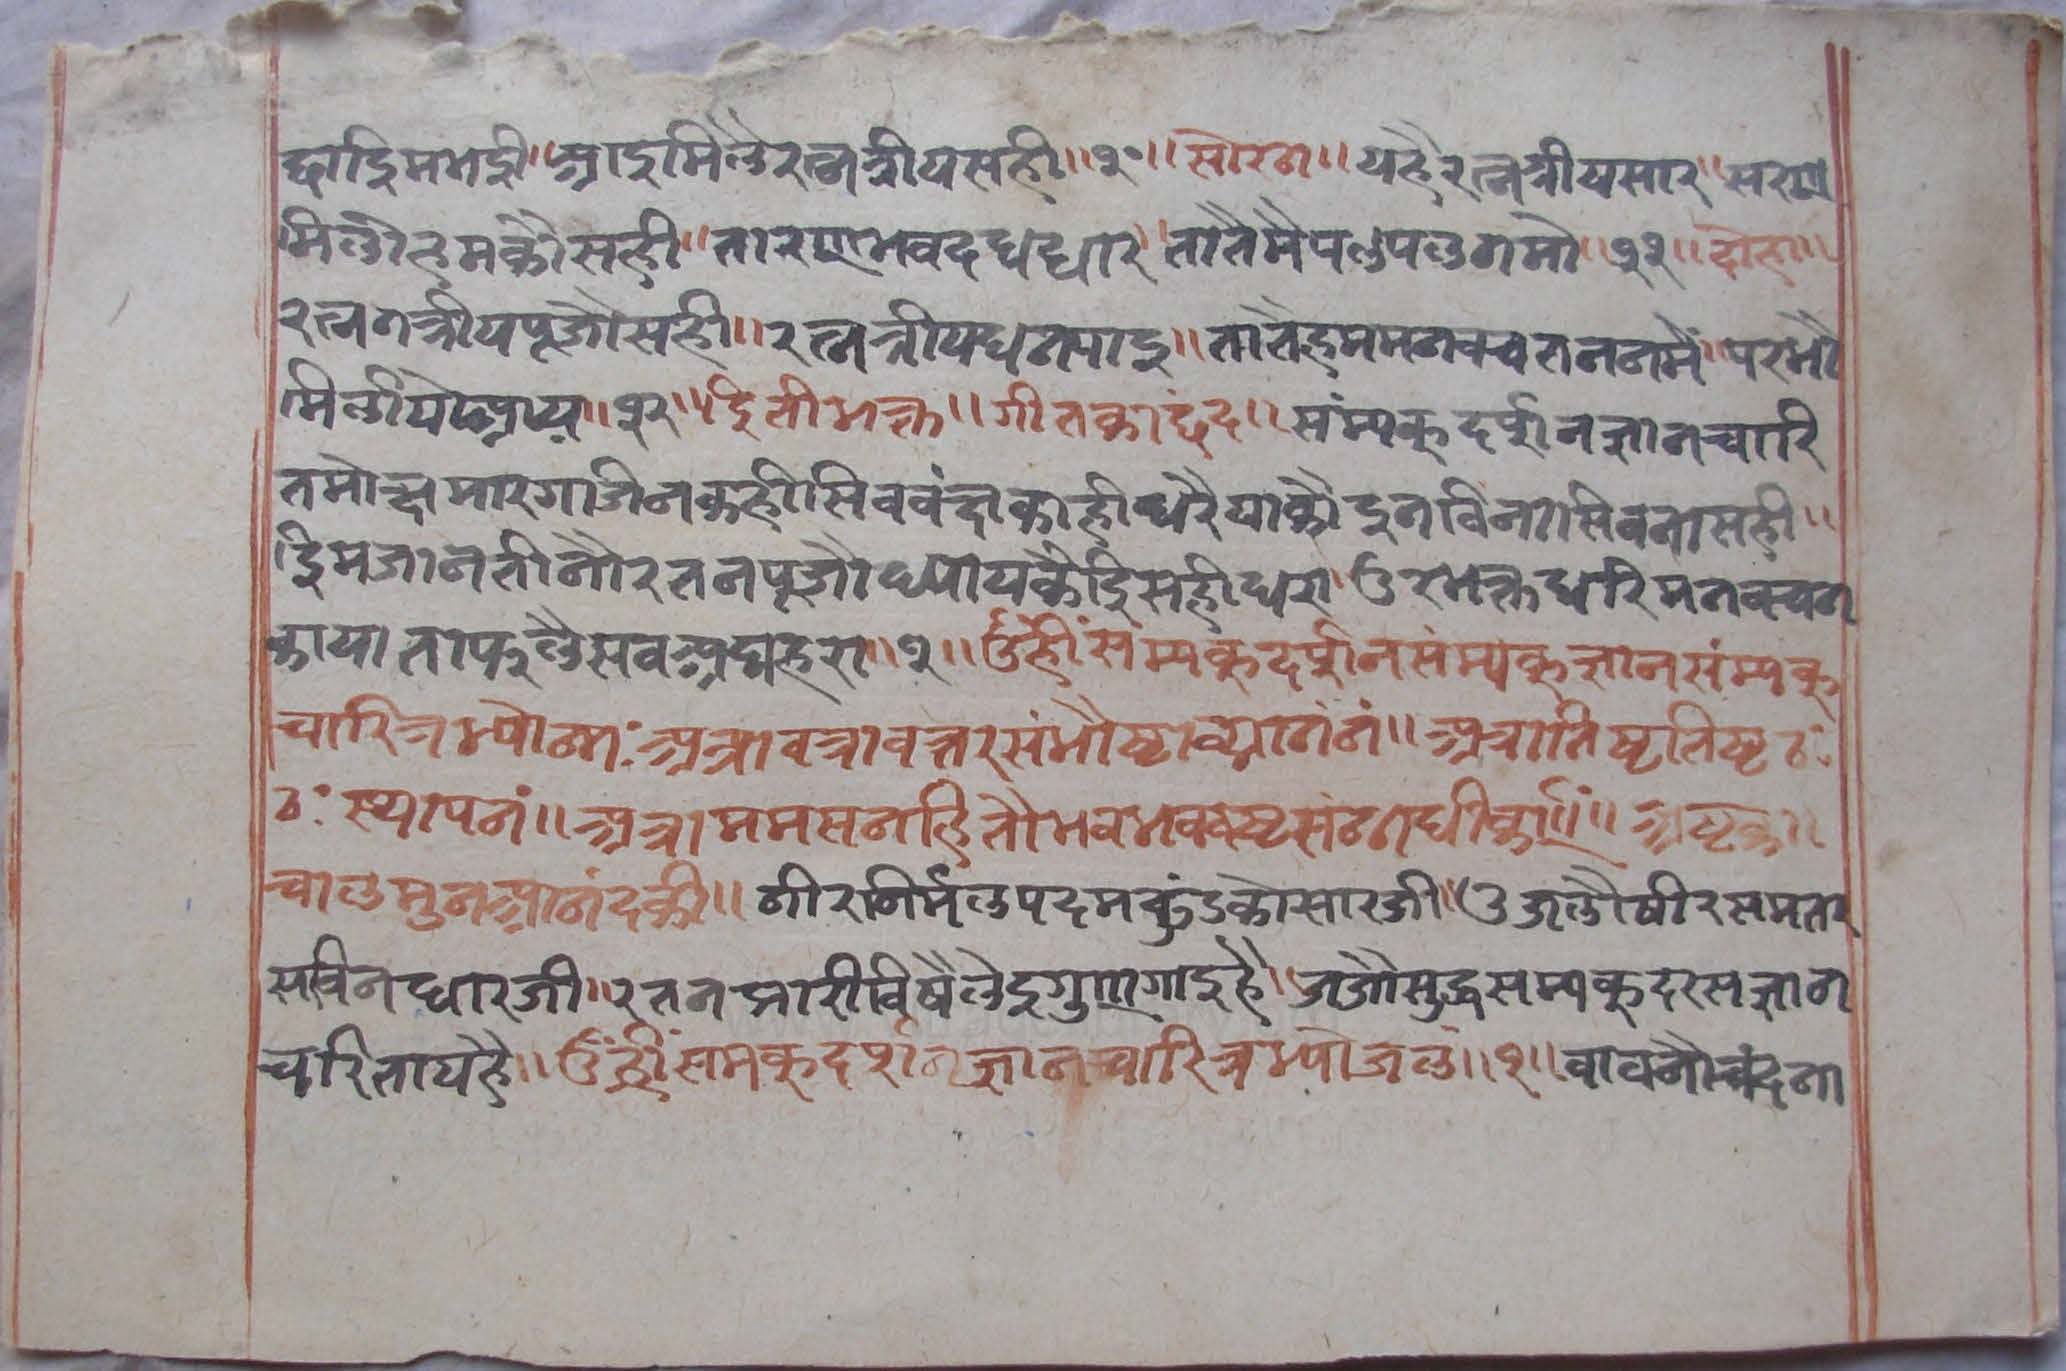 द्यादिमभई॥आइमिलैरत्नत्रीयसही॥१०॥सोरठ॥यहैरत्नत्रीयसार॥सरण
मिलौहमकौसही॥तारणभवदधधार॥तातैमैपलपलनमो॥११॥दोहा॥
रत्नत्रीयपूजौसही॥रत्नत्रीयधनपाइ॥तातैहममनवचतननमैं॥परभौ
मिलीये॥१२॥इतीभक्त॥गीतकाछंद॥संम्यकदर्शनज्ञानचारि
तमोक्षमारगजिनकहीसिववंछकाहीधरैयाकौइनविनासिवनासही॥
इमजानतीनौरतनपूजौध्यायकैइसहीधरा उरभक्तधारिमनवचन
कायाताफलैसवअघहरा॥१॥उंह्रीं संम्यकदर्शनसंम्यकज्ञानसंम्यक
चारित्रभ्योनमः अत्रावत्रावत्तरसंभौष्टाव्हाननं॥अत्रातिष्टतिष्टठः
ठः स्थापनं॥अत्राममसनहितौभवभववष्टसंनधीकर्णं॥अष्टक॥
चालमुनआनंदकी॥नीरनिर्मलपदमकुंडकोसारजी॥उजलौषीरसमता
सविनधारजी॥रतनझारीविषैलेइगुणगाइहै॥जजौसुद्धसम्यकदरसज्ञान
चारितायहै॥उंह्रींसमकदर्शनज्ञानचारित्रभ्योजलं॥१॥वावनौचंदना